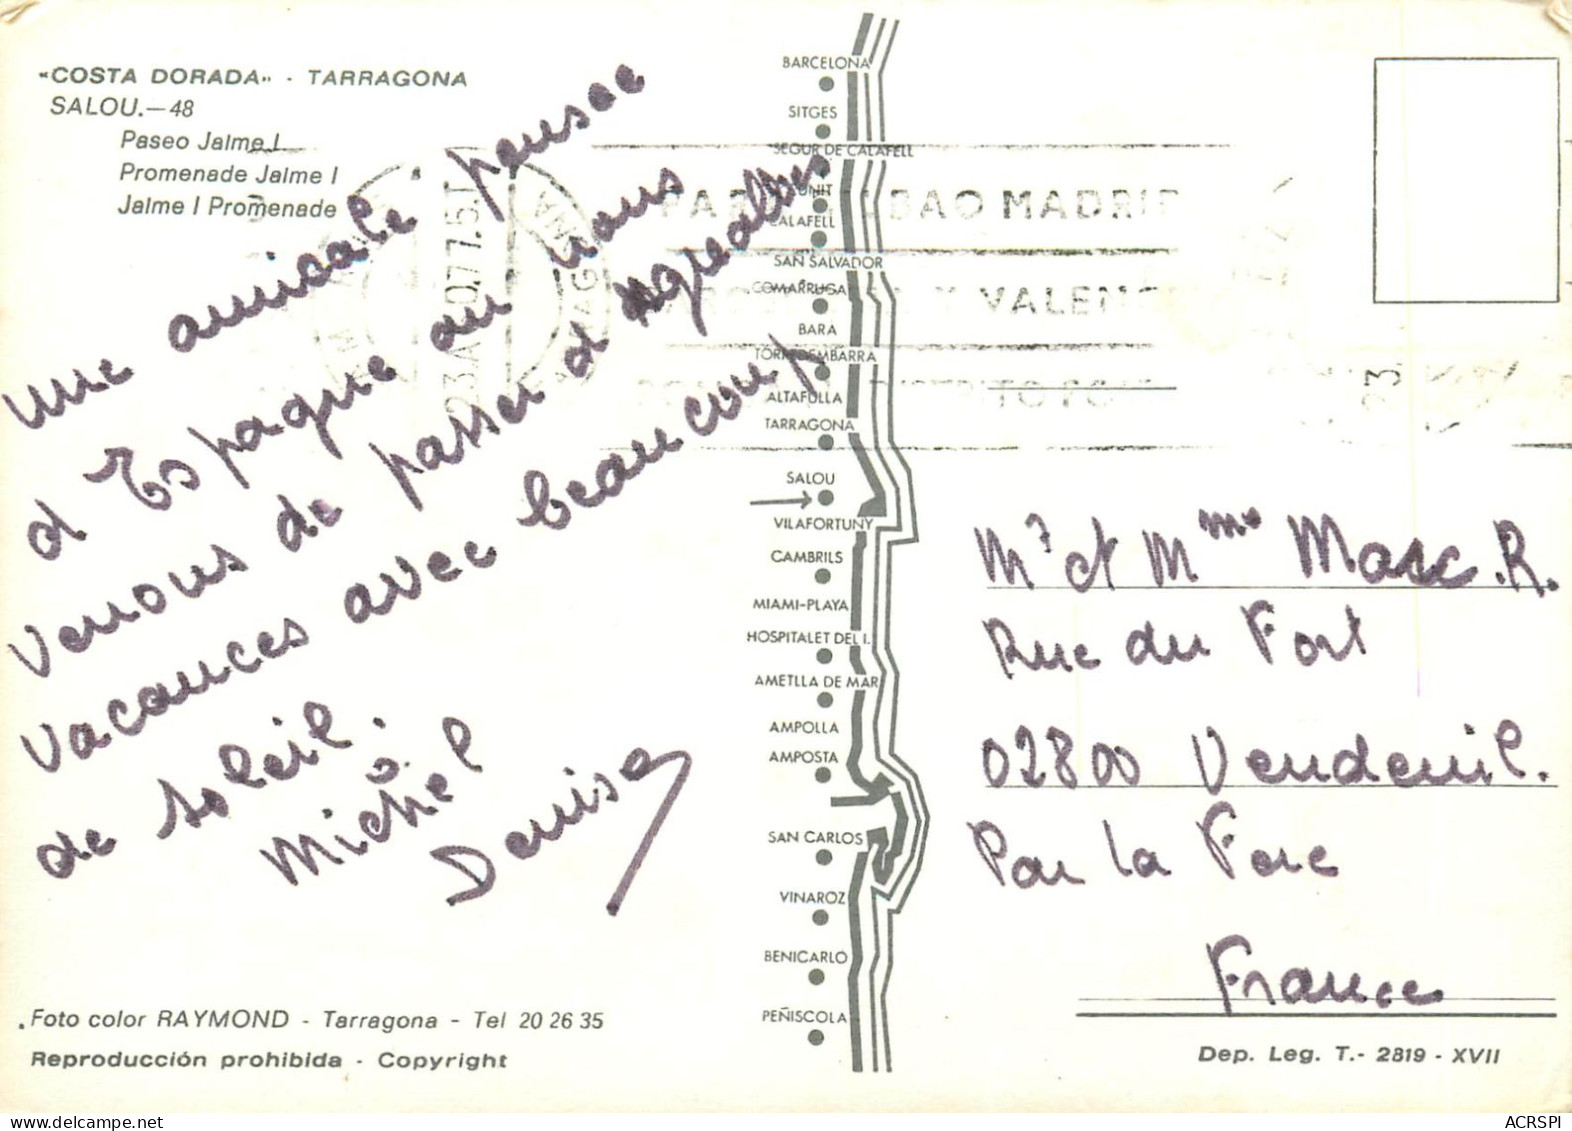 «COSTA DORADA» - TARRAGONA
SALOU.—48
Paseo Jaime I
Promenade Jaime I
Jaime I Promenade
une amicale pensee
d'Espagne ou nous
venous de passer d'agreables
vacances avec beaucoup
de soleil.
Michel
Denise
Foto color RAYMOND - Tarragona - Tel 20 26 35
Reproducción prohibida - Copyright
BARCELONA
SITGES
SEGUR DE CALAFELL
CALAFELL
SAN SALVADOR
COMARRUGA
BARA
TORREDEMBARRA
ALTAFULLA
TARRAGONA
SALOU
VILAFORTUNY
CAMBRILS
MIAMI-PLAYA
HOSPITALET DEL I.
AMETLLA DE MAR
AMPOLLA
AMPOSTA
SAN CARLOS
VINAROZ
BENICARLO
PEÑISCOLA
MADRID
Y VALEN
Mr et Mme Marc R.
Rue du Fort
02800 Vendeuil.
Par la Fere
France
Dep. Leg. T.- 2819 - XVII
ACRSPI